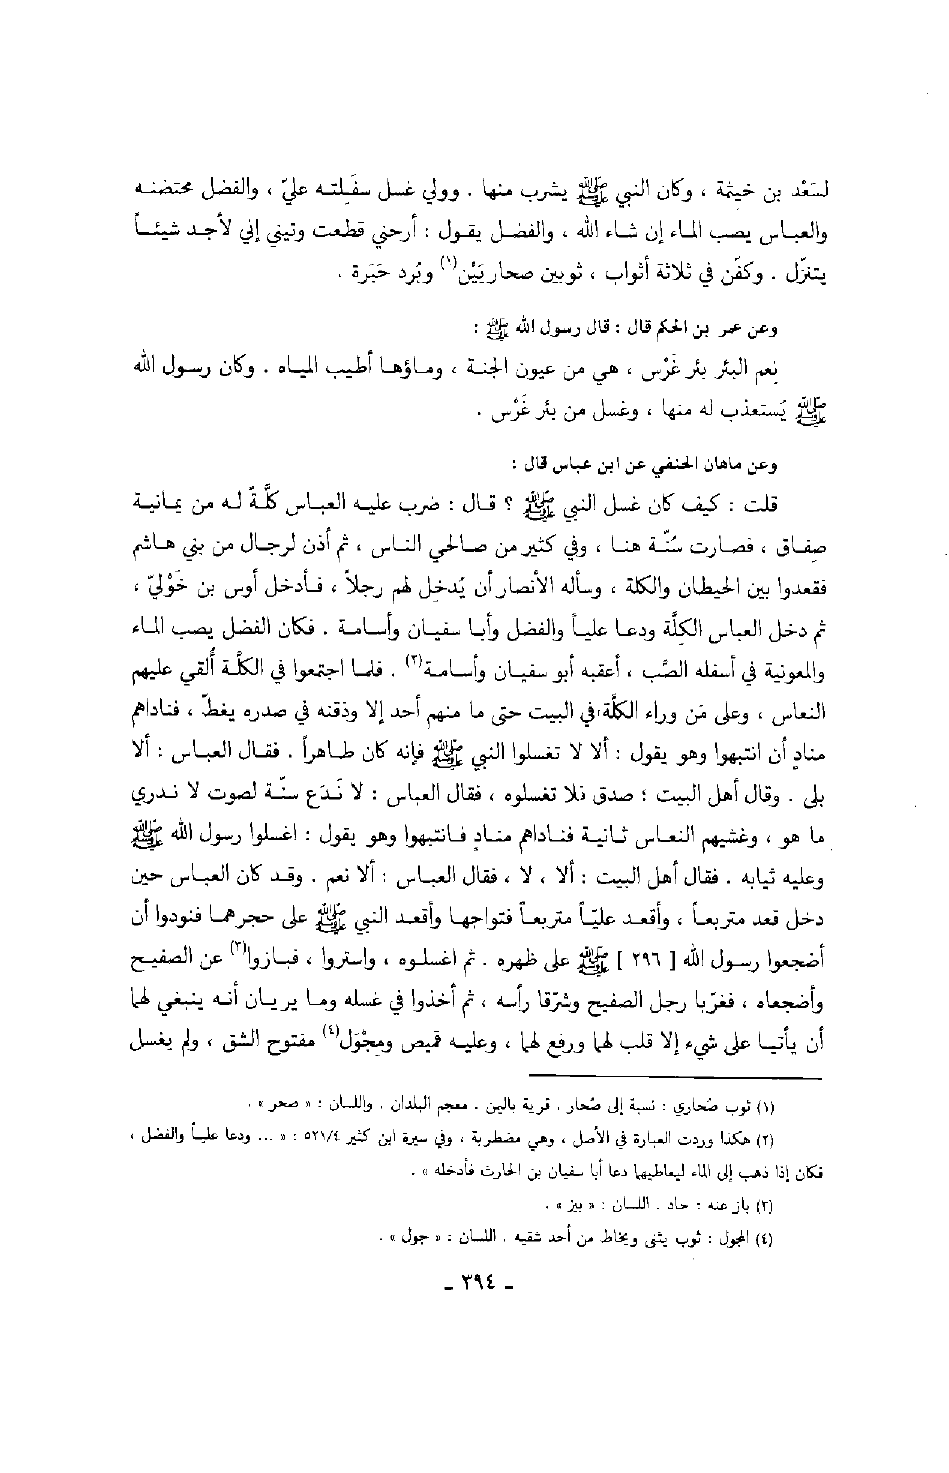 لسَعْد بن خيثمة ، وكان النبي ﷺ يشرب منها . وولي غسل سفَلِته عليّ ، والفضل محتضنه
والعباس يصب الماء إن شاء الله ، والفضل يقول : أرحني قطعت وتيني إني لأجد شيئاً
يتنزّل . وكفّن في ثلاثة أثواب ، ثوبين صحاريَيْن(١) وبُرد حَبَرة .
وعن عمر بن الحكم قال : قال رسول الله ﷺ :
نِعم البئر بئر غَرْس ، هي من عيون الجنة ، وماؤها أطيب المياه . وكان رسول الله
ﷺ يُستعذب له منها ، وغسل من بئر غَرْس .
وعن ماهان الحنفي عن ابن عباس قال :
قلت : كيف كان غسل النبي ﷺ ؟ قال : ضرب عليه العباس كلَّةً له من يمانية
صِفاق ، فصارت سُنّة هنا ، وفي كثير من صالحي الناس ، ثم أذن لرجال من بني هاشم
فقعدوا بين الحيطان والكلة ، وسأله الأنصار أن يُدخل لهم رجلاً ، فأدخل أوس بن خَوْليّ ،
ثم دخل العباس الكلَّة ودعا علياً والفضل وأبا سفيان وأسامة . فكان الفضل يصب الماء
والمعونية في أسفله الصَّب ، أعقبه أبو سفيان وأسامة(٢) . فلما اجتمعوا في الكلَّة أُلقي عليهم
النعاس ، وعلى مَن وراء الكلَّة في البيت حتى ما منهم أحد إلا وذقنه في صدره يغطّ ، فناداهم
منادٍ أن انتبهوا وهو يقول : ألا لا تغسلوا النبي ﷺ فإنه كان طاهراً . فقال العباس : ألا
بلى . وقال أهل البيت : صدق فلا تغسلوه ، فقال العباس : لا نَدَع سنّة لصوت لا ندري
ما هو ، وغشيهم النعاس ثانية فناداهم منادٍ فانتبهوا وهو يقول : اغسلوا رسول الله ﷺ
وعليه ثيابه . فقال أهل البيت : ألا ، لا ، فقال العباس : ألا نعم . وقد كان العباس حين
دخل قعد متربعاً ، وأقعد عليّاً متربعاً فتواجها وأقعد النبي ﷺ على حجرهما فنودوا أن
أضجعوا رسول الله [ ٢٩٦ ] ﷺ على ظهره . ثم اغسلوه ، واستروا ، فبازوا(٣) عن الصفيح
وأضجعاه ، فغرّبا رجل الصفيح وشرّقا رأسه ، ثم أخذوا في غسله وما يريان أنه ينبغي لهما
أن يأتيا على شيء إلا قلب لهما ورفع لهما ، وعليه قميص ومِجْوَل(٤) مفتوح الشق ، ولم يغسل
(١) ثوب صُحاري : نسبة إلى صُحار . قرية باليمن . معجم البلدان . واللسان : « صحر » .
(٢) هكذا وردت العبارة في الأصل ، وهي مضطربة ، وفي سيرة ابن كثير ٥٢١/٤ : « ... ودعا علياً والفضل ،
فكان إذا ذهب إلى الماء ليعاطيهما دعا أبا سفيان بن الحارث فأدخله » .
(٣) باز عنه : حاد . اللسان : « بيز » .
(٤) المجول : ثوب يثنى ويخاط من أحد شقيه . اللسان : « جول » .
ـ ٣٩٤ ـ